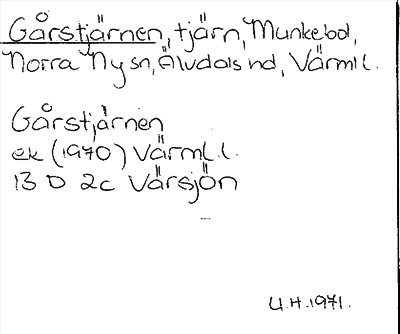 Gårstjärnen, tjärn, Munkebol,
Norra Ny sn, Älvdals hd, Värml l.
Gårstjärnen
ek (1970) Värml. l.
13 D 2c Värsjön
U.H. 1971.